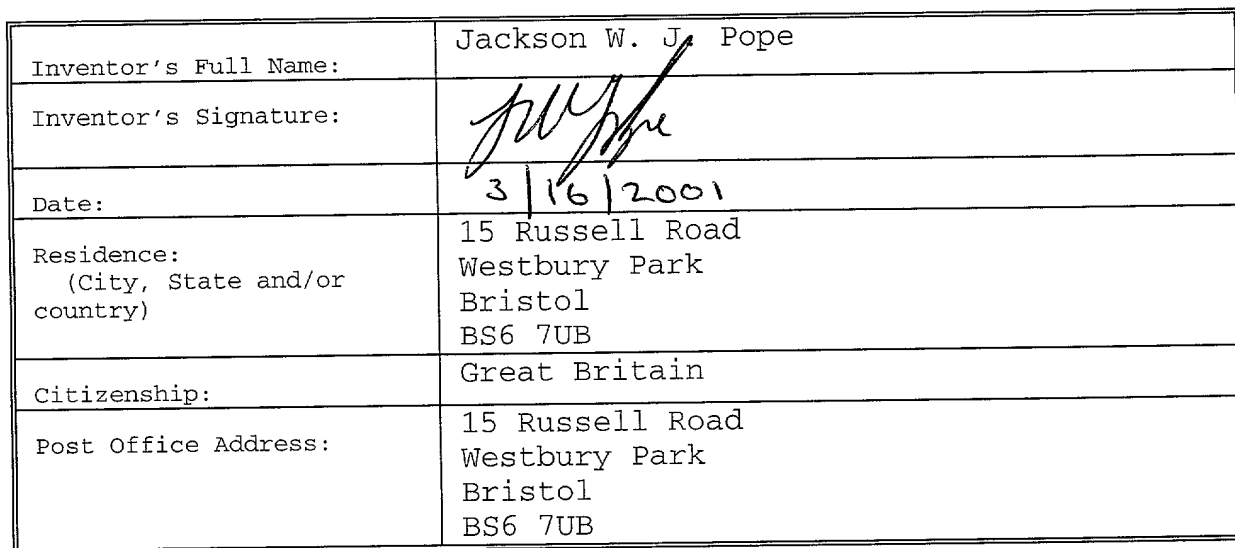 Inventor's Full Name: Jackson W. J. Pope
Inventor's Signature: JWJPope
Date: 3/16/2001
Residence: 15 Russell Road
(City, State and/or Westbury Park
country) Bristol
BS6 7UB
Citizenship: Great Britain
Post Office Address: 15 Russell Road
Westbury Park
Bristol
BS6 7UB